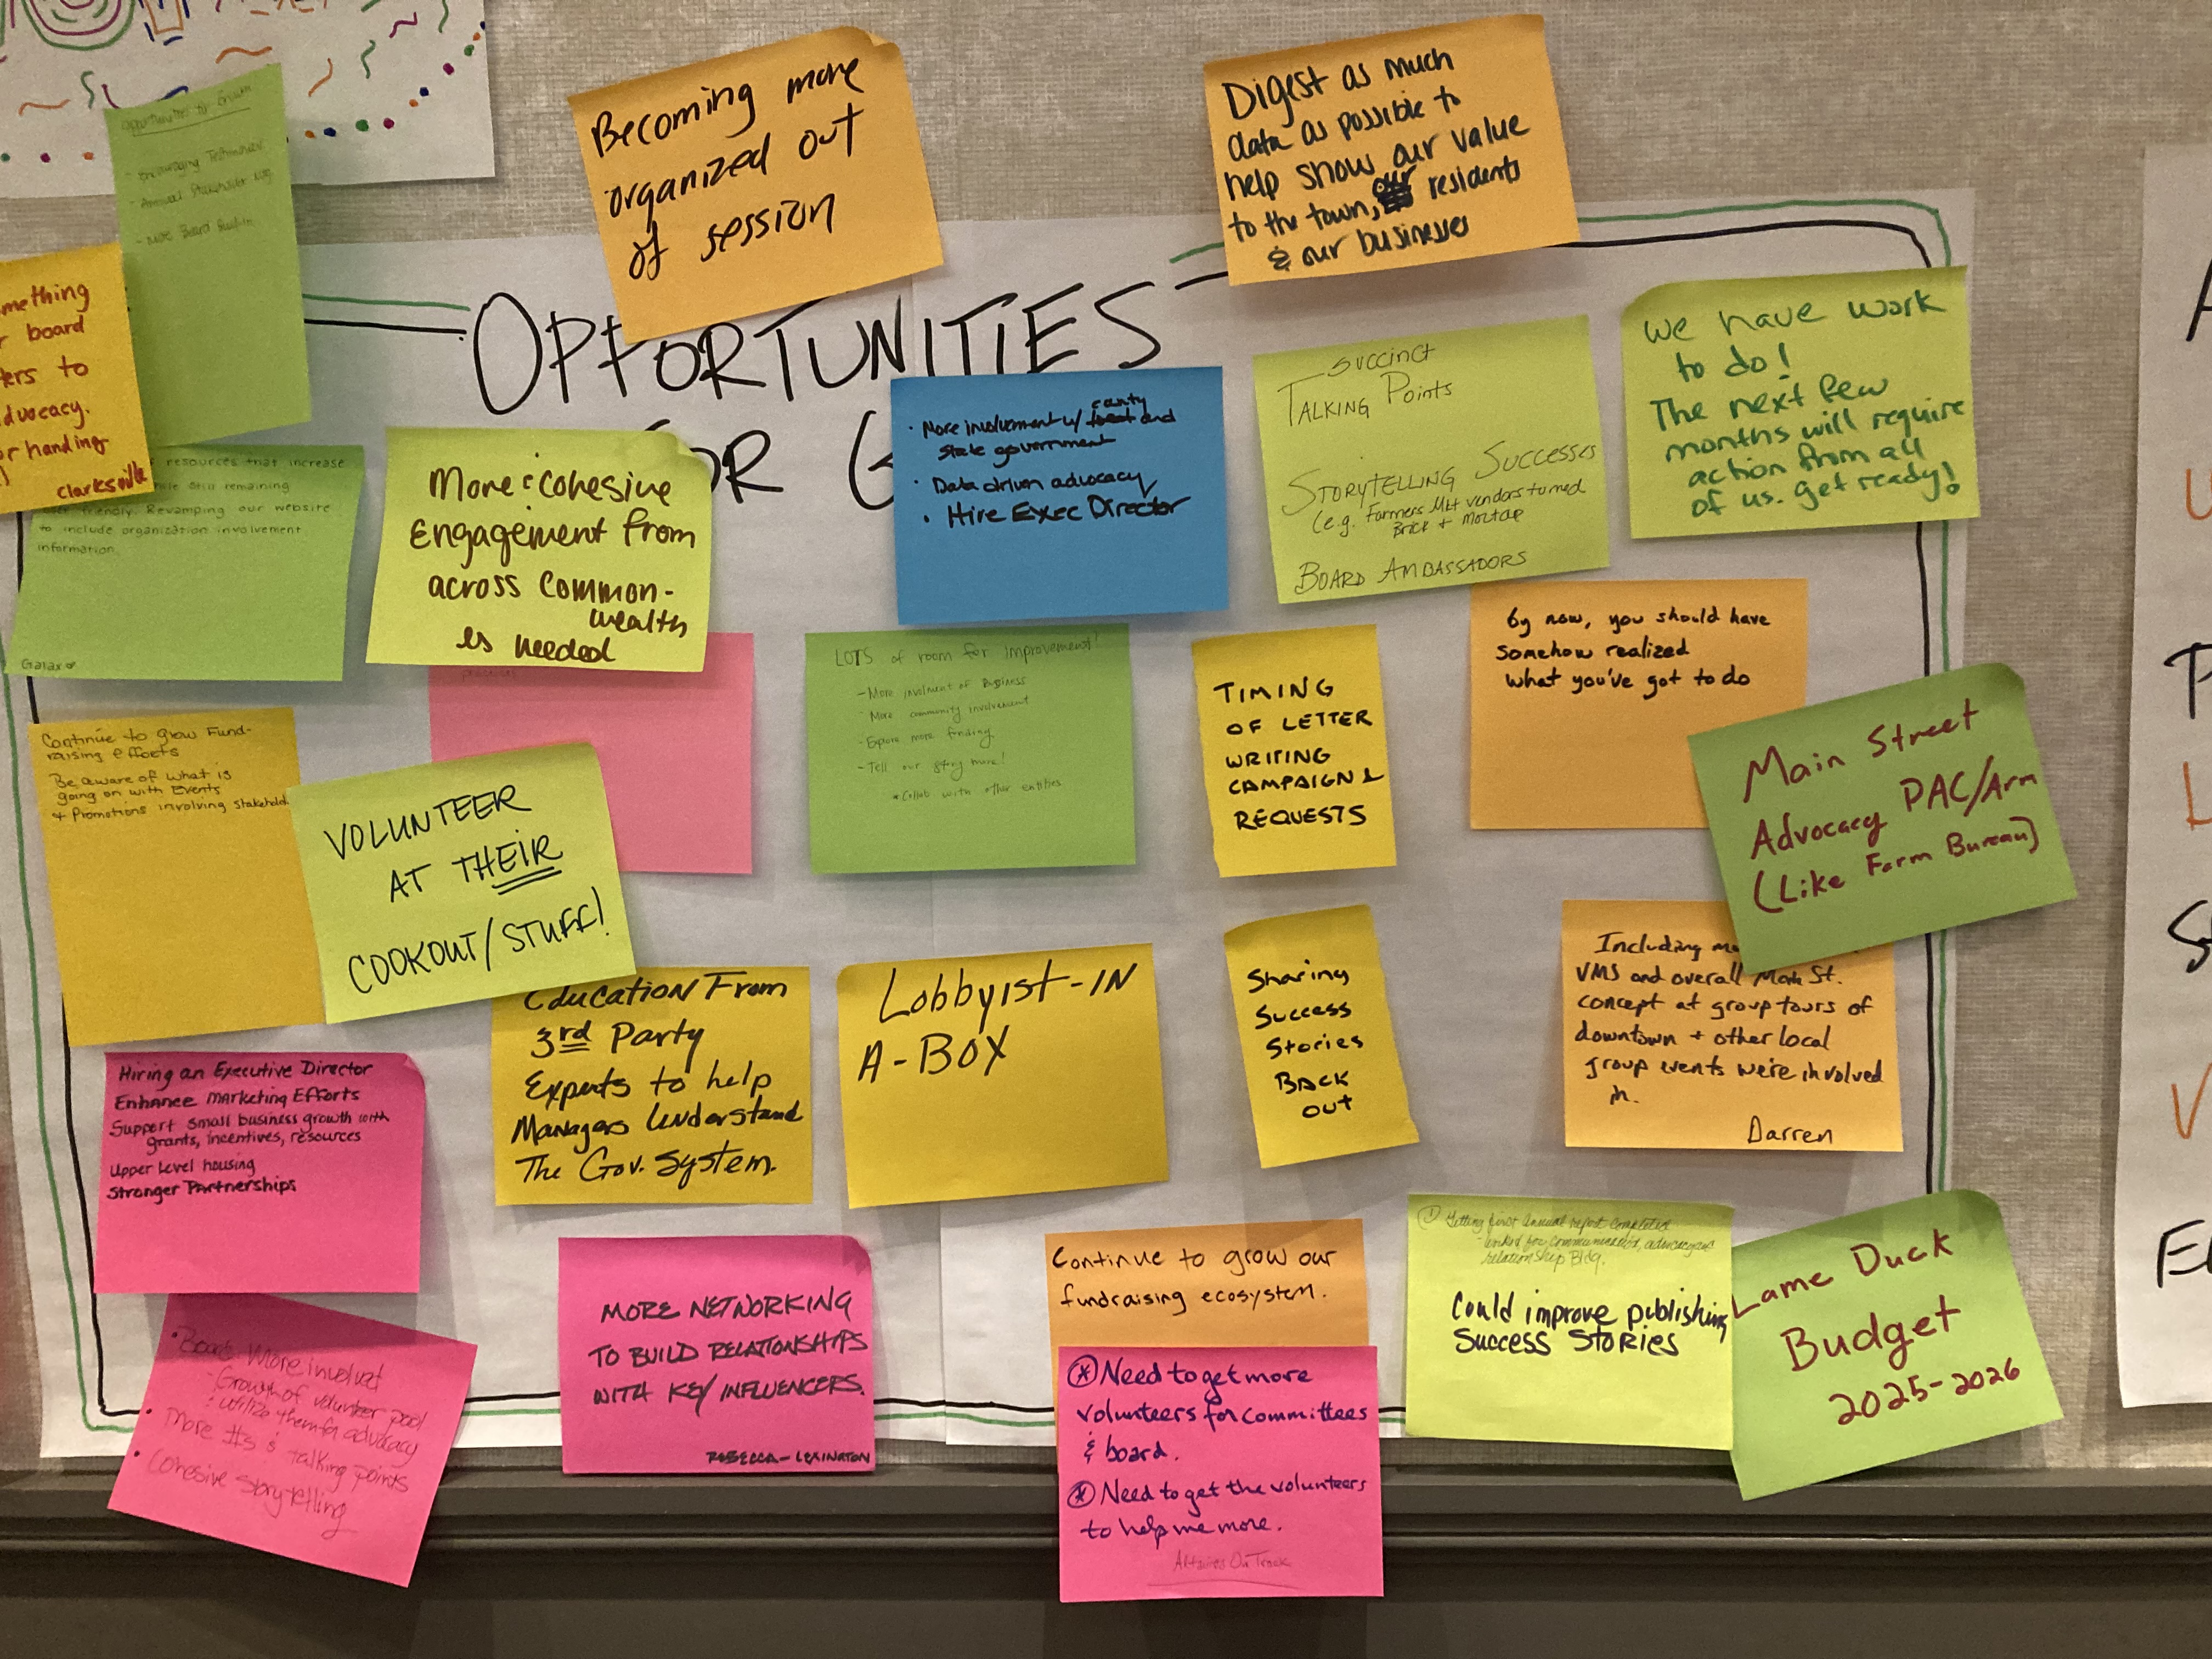 Opportunities to Growth
- Encouraging Testimonials
- Annual Stakeholder
- More Board
Becoming more
organized out
of session
Digest as much
data as possible to
help show our value
to the town, residents
& our businesses
mething
board
ers to
dvocacy.
or handing
Clarksville
OPPORTUNITIES
FOR G
resources that increase
still remaining
user friendly. Revamping our website
to include organization involvement
information.
Galax
More cohesive
Engagement from
across Common-
wealth
is needed
• More involvement w/ county and
state government
• Data driven advocacy
• Hire Exec Director
Succinct
Talking Points
Storytelling Successes
(e.g. Farmers Mkt vendors turned
Brick + Mortar
Board Ambassadors
We have work
to do!
The next few
months will require
action from all
of us. Get ready!
LOTS of room for improvement!
- More involment of Business
- More community involvement
- Explore more funding
- Tell our story more!
* Collab with other entities
TIMING
OF LETTER
WRITING
CAMPAIGN &
REQUESTS
by now, you should have
somehow realized
what you've got to do
Main Street
Advocacy PAC/Arm
(Like Farm Bureau)
Continue to grow Fund-
raising efforts
Be aware of what is
going on with Events
+ Promotions involving stakehold
VOLUNTEER
AT THEIR
COOKOUT/STUFF!
Education From
3rd Party
Experts to help
Managers Understand
The Gov. System.
Lobbyist-IN
A-BOX
Sharing
Success
Stories
BACK
OUT
Including mo
VMS and overall Main St.
concept at group tours of
downtown + other local
group events we're involved
in.
Darren
Hiring an Executive Director
Enhance Marketing Efforts
Support small business growth with
grants, incentives, resources
Upper Level housing
Stronger Partnerships
• Board More involved
- Growth of volunteer pool
: utilize them for advocacy
• More #s & talking points
• Cohesive storytelling
MORE NETWORKING
TO BUILD RELATIONSHIPS
WITH KEY INFLUENCERS.
REBECCA - LEXINGTON
Continue to grow our
fundraising ecosystem.
* Need to get more
volunteers for committees
& board.
* Need to get the volunteers
to help me more.
Altavista On Track
① Getting first Annual report completed
- linked for communication, advocacy and
relationship Bldg.
Could improve publishing
Success Stories
Lame Duck
Budget
2025-2026